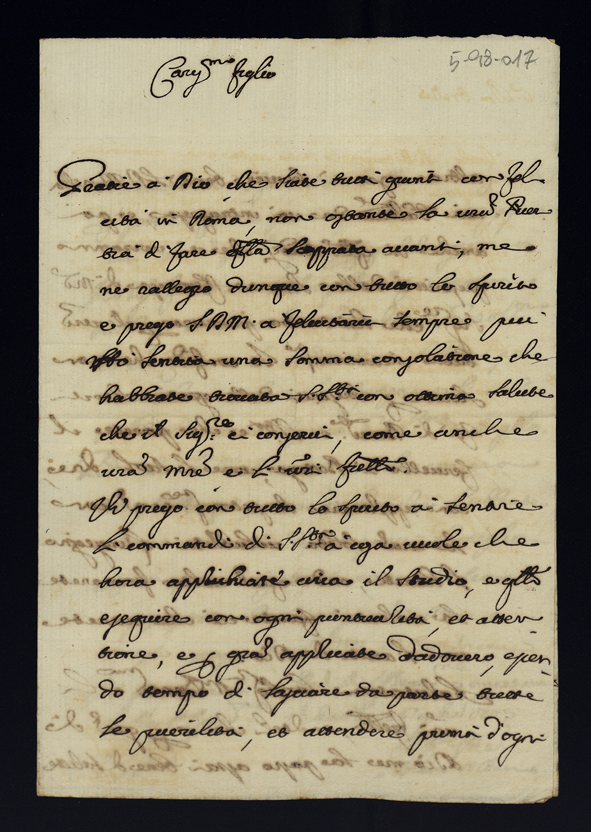 5-98-017
Cariss.mo figlio
Gratie a Dio che siate tutti giunti con fel
cità in Roma, non ostante la vra
di fare scappata avanti, me
ne rallegro dunque con tutto lo spirito
e prego S. D. M. a felicitarvi sempre più
Ho sentita una somma consolatione che
habbiate trovata S. S.tà con ottima salute
che il Sig.re ci conservi, come anche
vra M.re e li vri fr.lli.
Vi prego con tutto lo spirito a sentire
li commandi di S. S.tà a cosa vuole che
hora applichiate circa il studio, e q.llo
eseguire con ogni puntualità, et atten
tione, e p gra applicate dadovero, essen
do tempo di lasciare da parte tutte
le puerilità, et attendere prima d'ogni